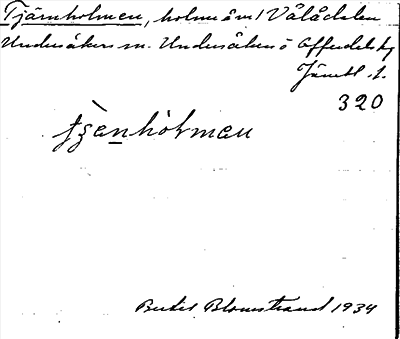 Tjärnholmen, holme åml Vålådalen
Undersåkers sn. Undersåkers o Offerdals tg
Jämtl. l.
320
Bertil Blomstrand 1934